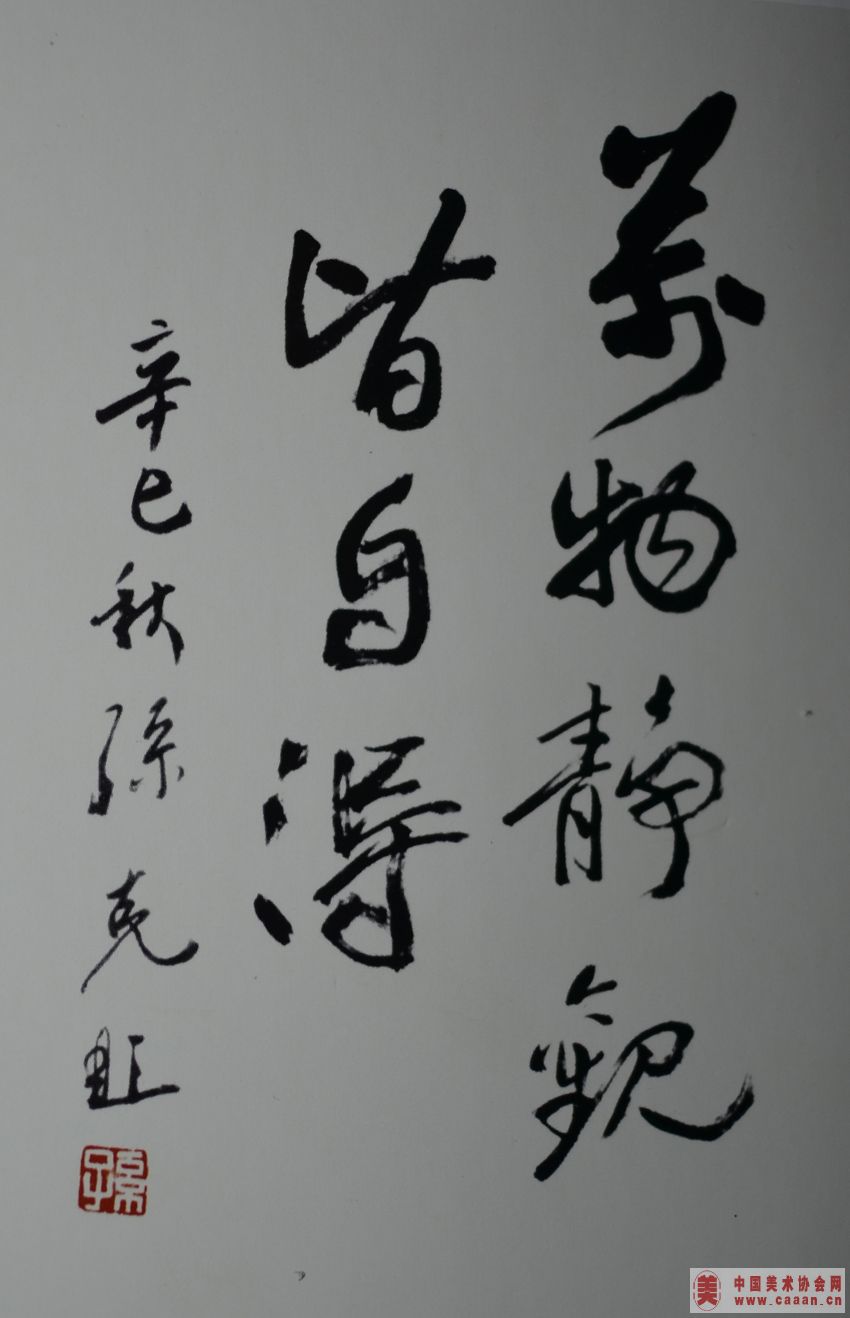 萬物静觀
皆自得
辛巳秋孫克
孫
美 中国美术协会网
www.caaan.cn